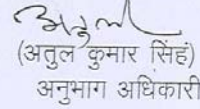 अतुल
(अतुल कुमार सिंहं)
अनुभाग अधिकारी